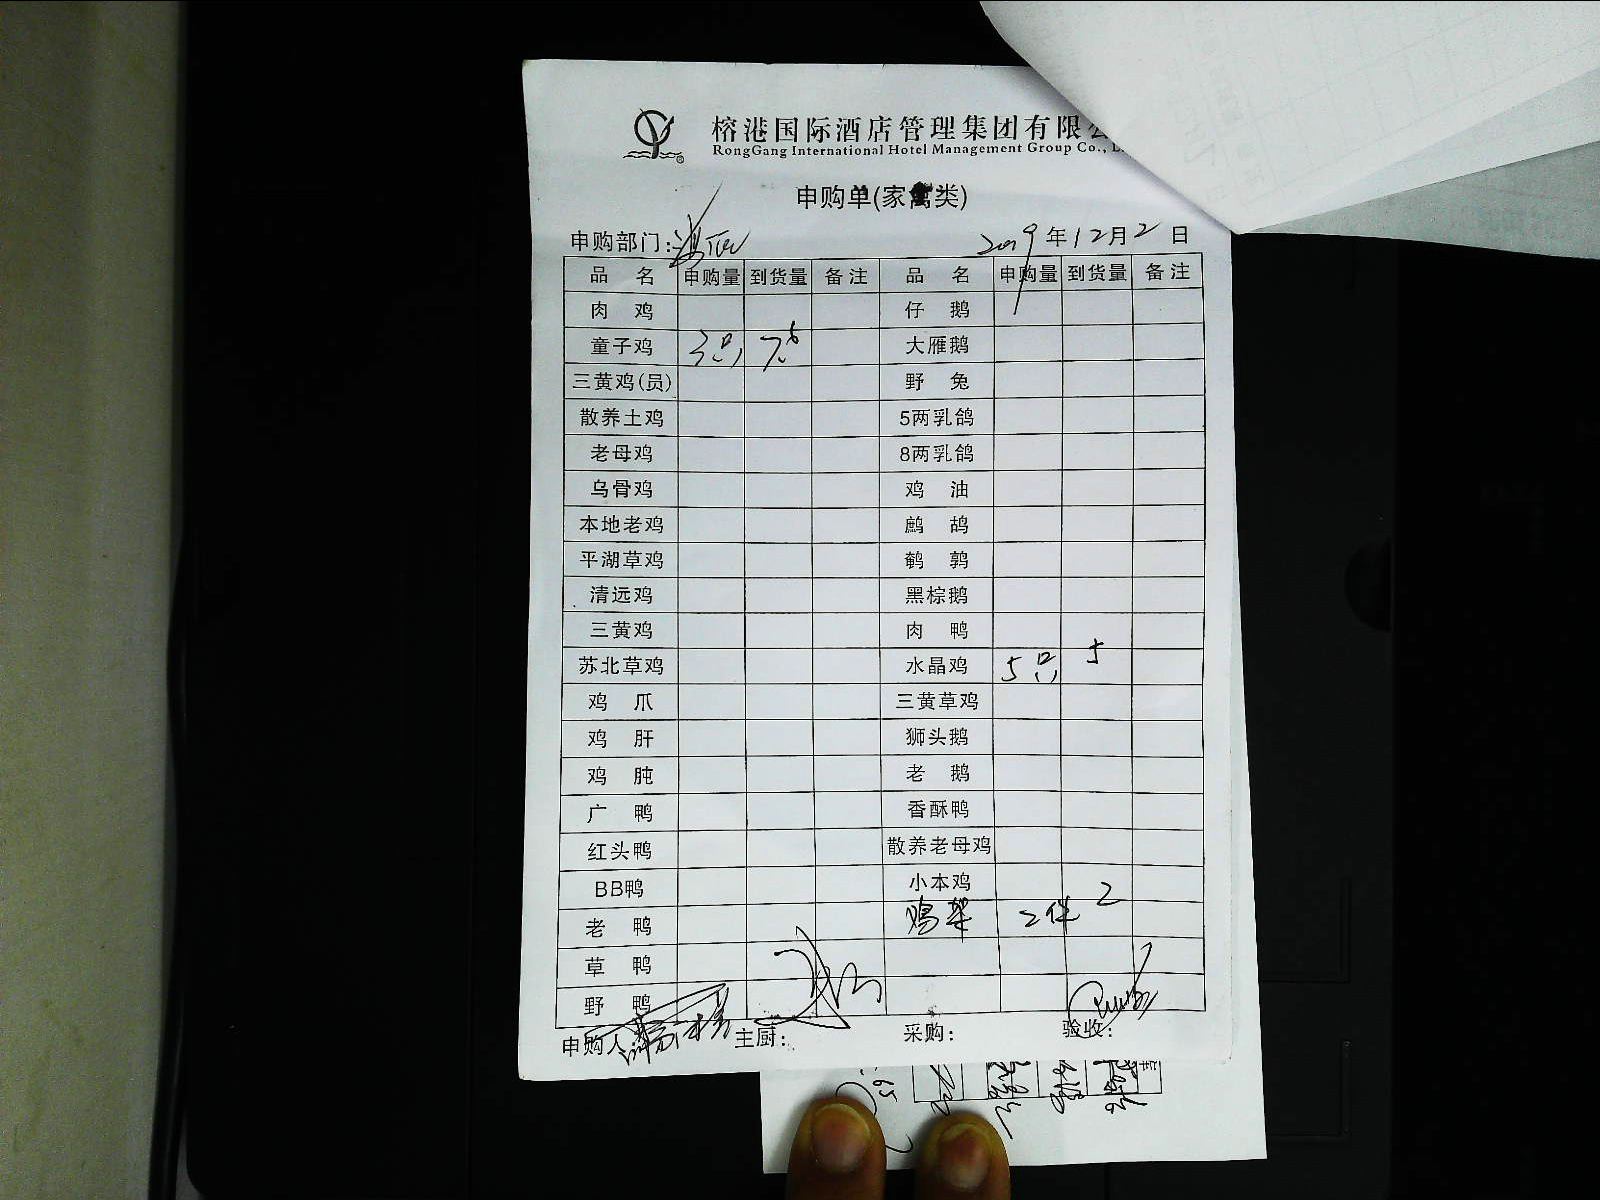 榕港国际酒店管理集团有限公
RongGang International Hotel Management Group Co.,
申购单(家禽类)
申购部门: 2019年12月2日
品名 申购量 到货量 备注 品名 申购量 到货量 备注
肉鸡 仔鹅
童子鸡 3只 大雁鹅
三黄鸡(员) 野兔
散养土鸡 5两乳鸽
老母鸡 8两乳鸽
乌骨鸡 鸡油
本地老鸡 鹧鸪
平湖草鸡 鹌鹑
清远鸡 黑棕鹅
三黄鸡 肉鸭
苏北草鸡 水晶鸡 5只 5
鸡爪 三黄草鸡
鸡肝 狮头鹅
鸡肫 老鹅
广鸭 香酥鸭
红头鸭 散养老母鸡
BB鸭 小本鸡
老鸭 鸡架 2件 2
草鸭
野鸭
申购人: 主厨: 采购: 验收: